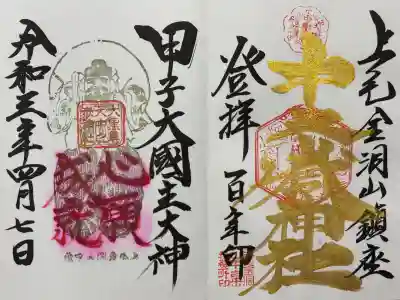 上毛金洞山鎮座
中之嶽神社
登拝 百年印
甲子大國主大神
心願
成就
令和三年四月七日